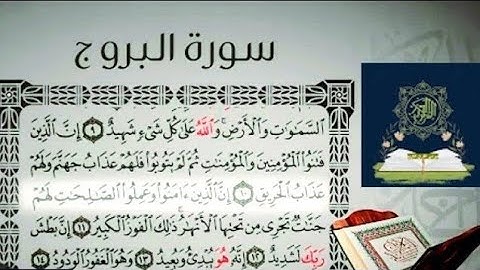 سورة البروج
السَّمَٰوَٰتِ وَالْأَرْضِ ۚ وَاللَّهُ عَلَىٰ كُلِّ شَىْءٍ شَهِيدٌ ﴿٩﴾ إِنَّ الَّذِينَ
فَتَنُوا الْمُؤْمِنِينَ وَالْمُؤْمِنَٰتِ ثُمَّ لَمْ يَتُوبُوا فَلَهُمْ عَذَابُ جَهَنَّمَ وَلَهُمْ
عَذَابُ الْحَرِيقِ ﴿١٠﴾ إِنَّ الَّذِينَ ءَامَنُوا وَعَمِلُوا الصَّٰلِحَٰتِ لَهُمْ
جَنَّٰتٌ تَجْرِى مِن تَحْتِهَا الْأَنْهَٰرُ ۚ ذَٰلِكَ الْفَوْزُ الْكَبِيرُ ﴿١١﴾ إِنَّ بَطْشَ
رَبِّكَ لَشَدِيدٌ ﴿١٢﴾ إِنَّهُۥ هُوَ يُبْدِئُ وَيُعِيدُ ﴿١٣﴾ وَهُوَ الْغَفُورُ الْوَدُودُ ﴿١٤﴾